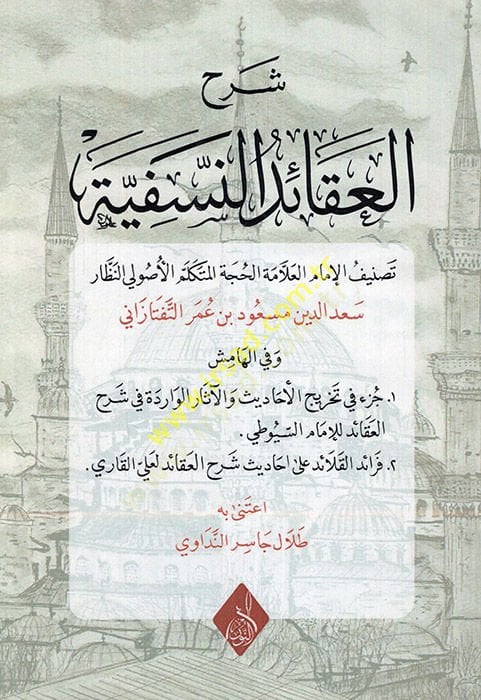 شرح
العقائد النسفية
تصنيف الإمام العلامة الحجة المتكلم الأصولي النظار
سعد الدين مسعود بن عُمَر التفتازاني
وفي الهامش
١. جُزء في تخريج الأحاديث والآثار الواردة في شرح
العقائد للإمام السيوطي.
٢. فرائد القلائد على احاديث شرح العقائد لعلي القاري.
اعتنى به
طلال جاسر النداوي